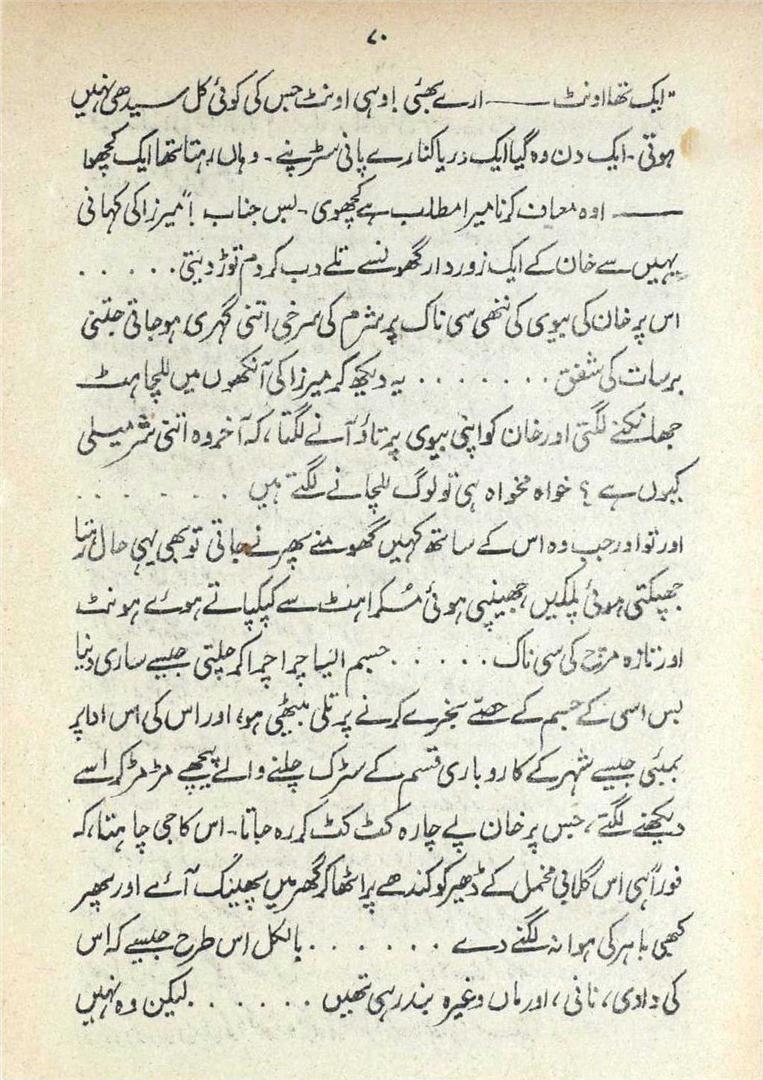 ۷۰
"ایک تھا اونٹ ——— ارے بھئی! وہی اونٹ جس کی کوئی کل سیدھی نہیں
ہوتی ۔ ایک دن وہ گیا ایک دریا کنارے پانی سٹرپنے ۔ وہاں رہتا تھا ایک کچھوا
——— اوہ معاف کرنا میرا مطلب ہے کچھوی ۔ بس جناب !" میرزا کی کہانی
یہیں سے خان کے ایک زوردار گھونسے تلے دب کر دم توڑ دیتی . . . . .
اس پر خان کی بیوی کی ننھی سی ناک پر شرم کی سرخی اتنی گہری ہو جاتی جتنی
برسات کی شفق . . . . . . . یہ دیکھ کر میرزا کی آنکھوں میں للچاہٹ
جھلکنے لگتی اور خان کو اپنی بیوی پر تاؤ آنے لگتا ، کہ آخر وہ اتنی شرمیلی
کیوں ہے ؟ خواہ مخواہ ہی تو لوگ للچانے لگتے ہیں . . . . . .
اور تو اور جب وہ اس کے ساتھ کہیں گھومنے پھرنے جاتی تو بھی یہی حال رہتا
جھپکتی ہوئی پلکیں جھینپی ہوئی مسکراہٹ سے کپکپاتے ہوئے ہونٹ
اور تازہ مرچ کی سی ناک . . . . . جسم ایسا چرا چرا کر چلتی جیسے ساری دنیا
بس اسی کے جسم کے حصّے بخرے کرنے پر تلی بیٹھی ہو، اور اس کی اس ادا پر
بمبئی جیسے شہر کے کاروباری قسم کے سڑک چلنے والے پیچھے مڑ مڑ کر اسے
دیکھنے لگتے ، جس پر خان بے چارہ کٹ کٹ کر رہ جاتا ۔ اس کا جی چاہتا، کہ
فوراً ہی اس گلابی مخمل کے ڈھیر کو کندھے پر اٹھا کر گھر میں پھینک آئے اور پھر
کبھی باہر کی ہوا نہ لگنے دے . . . . . . . بالکل اس طرح جیسے کہ اس
کی دادی ، نانی ، اور ماں وغیرہ بند رہی تھیں . . . . . . لیکن وہ نہیں